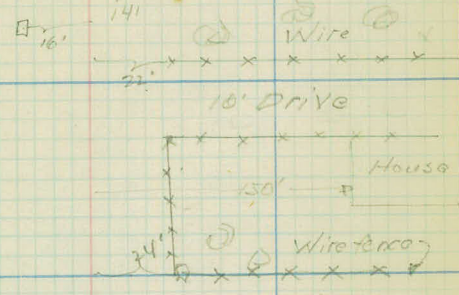 141
16'
Wire
22'
10' Drive
House
150'
24'
Wire fence